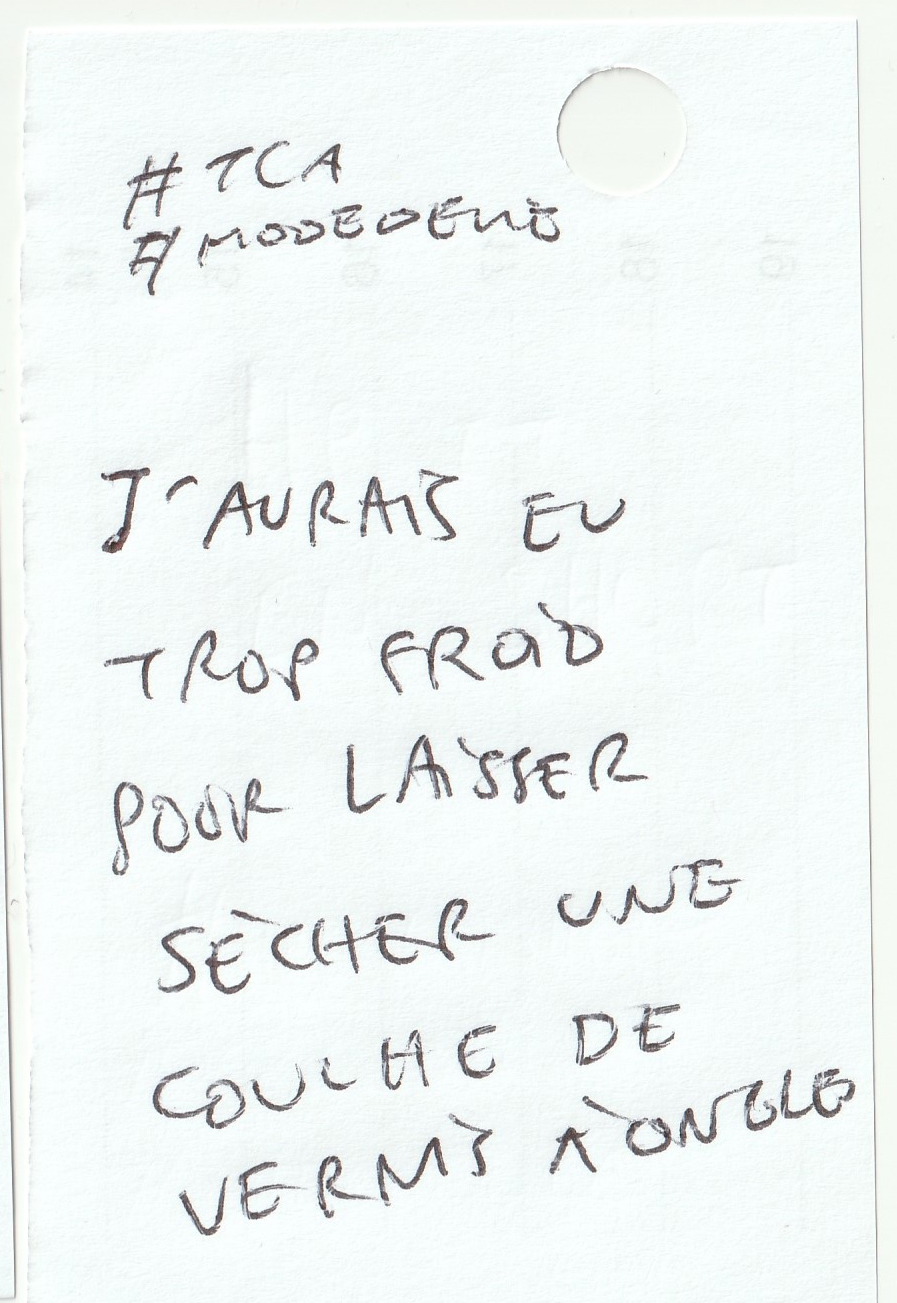 #TCA
#MODEDEMB
J'AURAIS EU
TROP FROID
POUR LAISSER
SÈCHER UNE
COUCHE DE
VERNIS À ONGLE